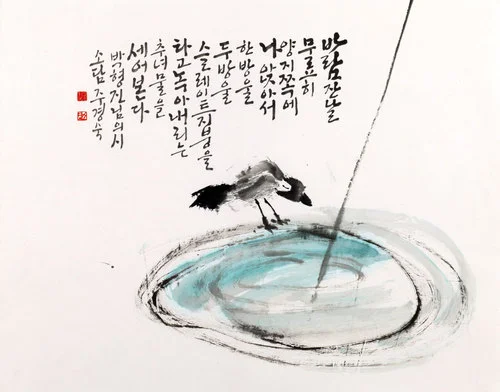 바람 잔 날
무료히
양지쪽에
나앉아서
한 방울
두 방울
슬레이트 지붕을
타고 녹아내리는
추녀 물을
세어본다
박형진님의 시
소담 주경숙